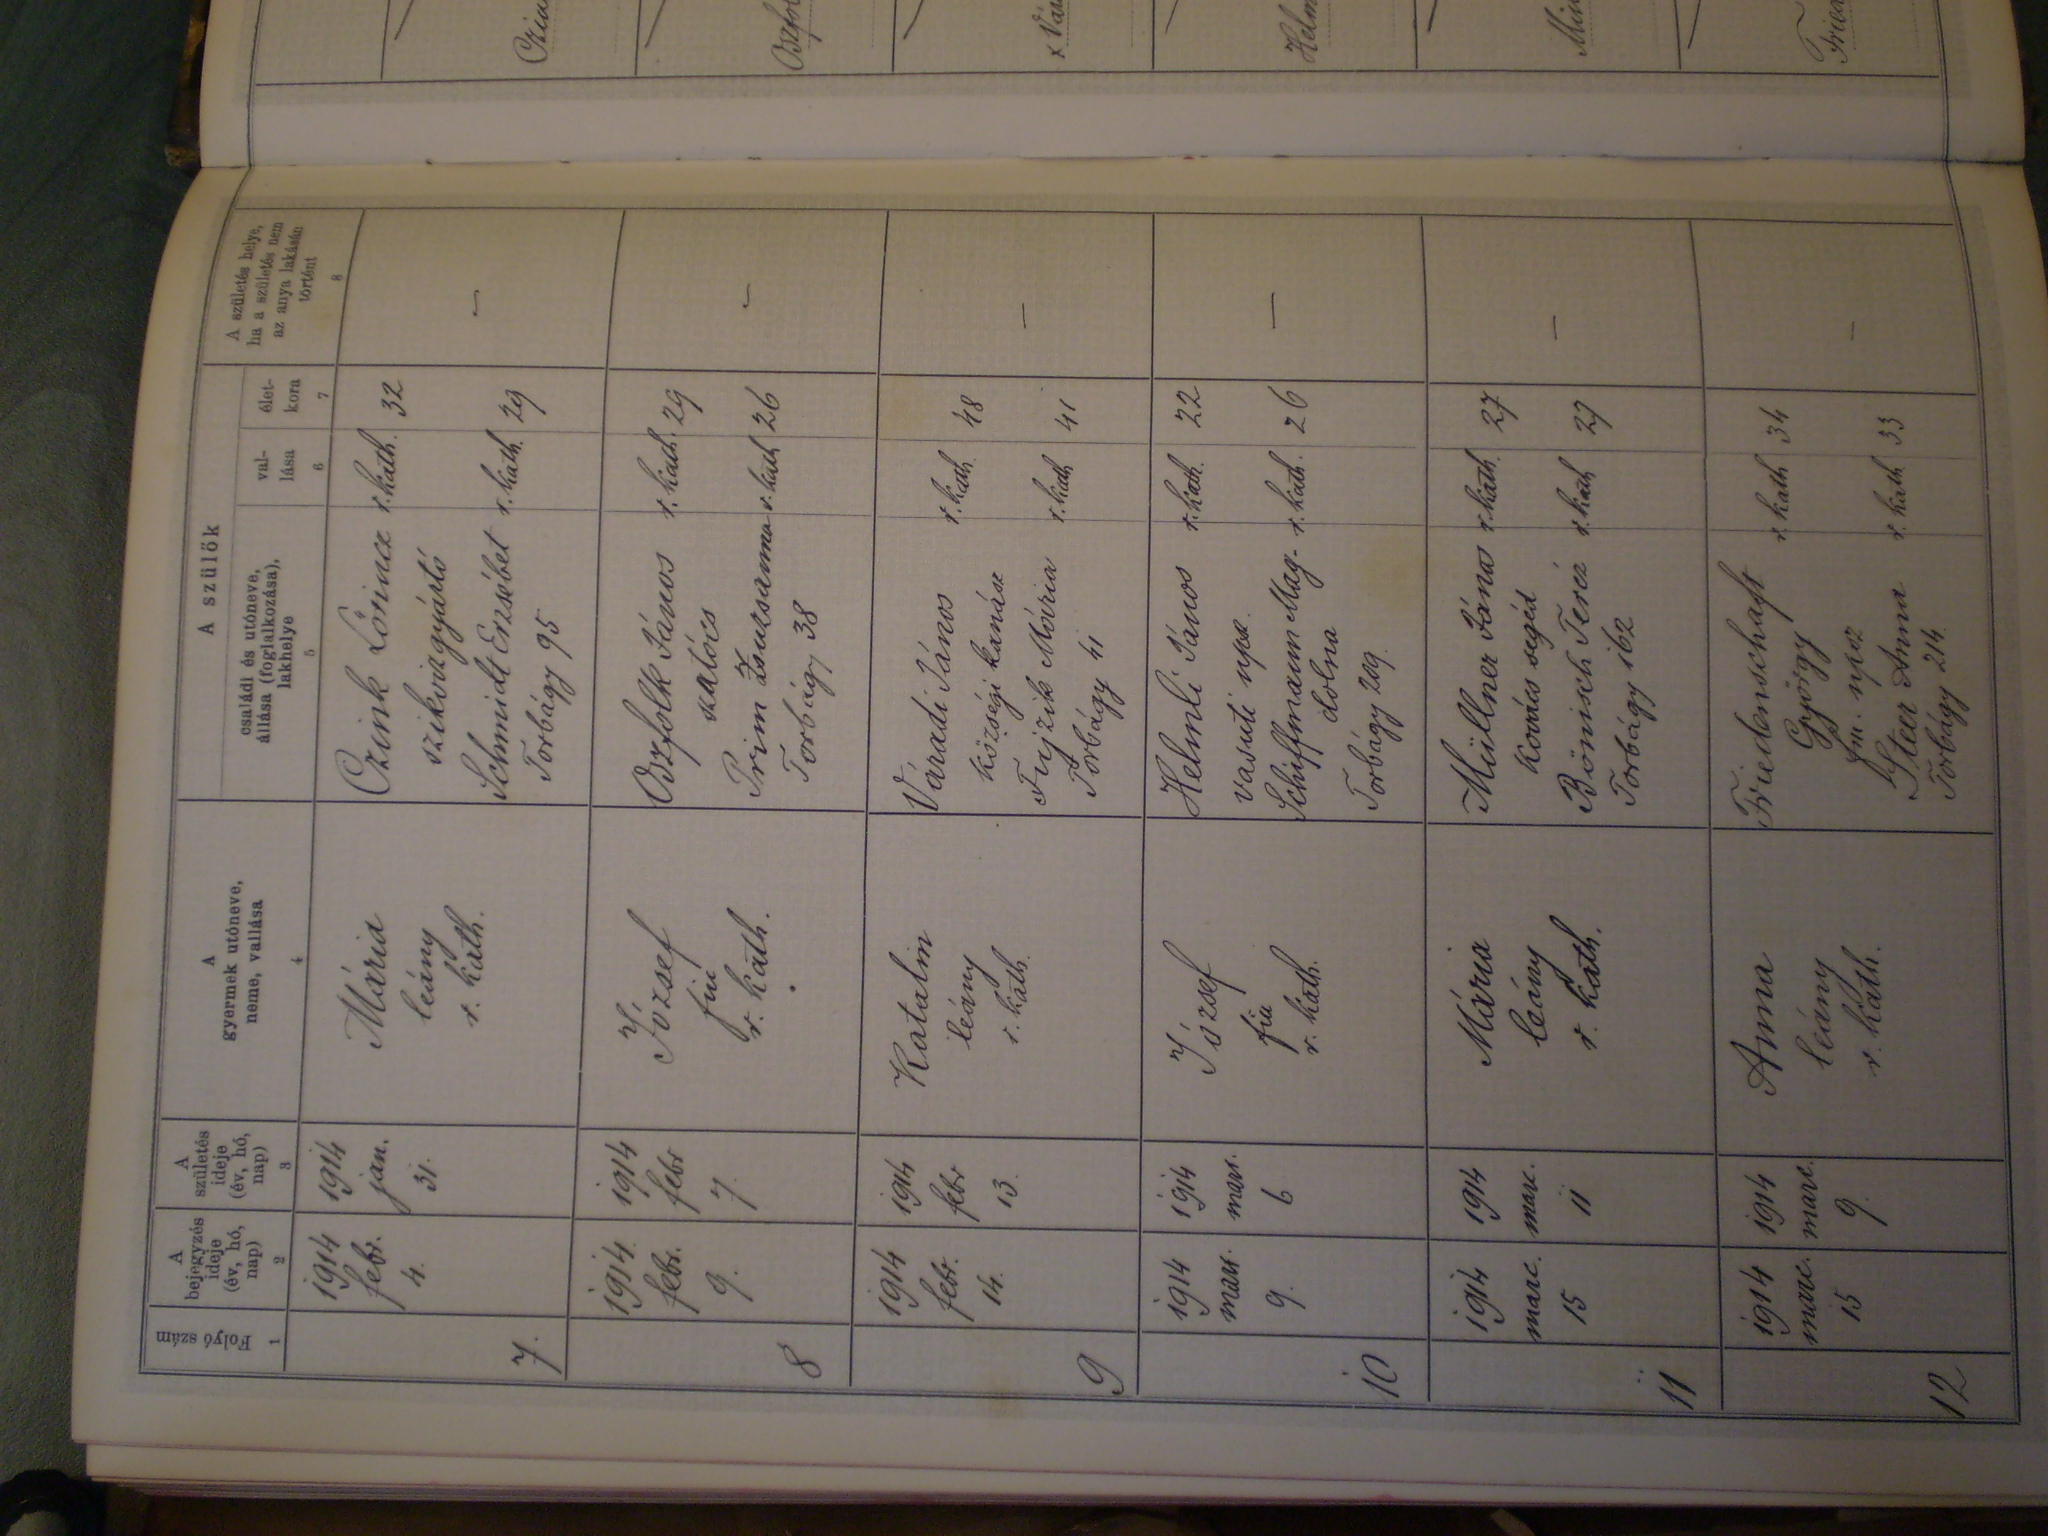 Folyó szám
1
A
bejegyzés
ideje
(év, hó,
nap)
2
A
születés
ideje
(év, hó,
nap)
3
A
gyermek utóneve,
neme, vallása
4
A szülők
családi és utóneve,
állása (foglalkozása),
lakhelye
5
val-
lása
6
élet-
kora
7
A születés helye,
ha a születés nem
az anya lakásán
történt
8
7.
1914
febr.
4.
1914
jan.
31.
Mária
leány
r. kath.
Czink Lőrincz r. kath. 32
szikvizgyártó
Schmidt Erzsébet r. kath. 29
Torbágy 95
—
8
1914.
febr.
9.
1914
febr
7.
József
fiu
r. kath.
Oszfolk János r. kath. 29
szatócs
Prim Zsuzsanna r. kath 26
Torbágy 38
—
9
1914
febr.
14.
1914
febr
13.
Katalin
leány
r. kath.
Váradi János r. kath. 48
községi kanász
Fujzik Mária r. kath 41
Torbágy 41
—
10
1914
márc.
9.
1914
marc.
6
József
fiu
r. kath.
Helmli János r. kath. 22
vasuti npsz.
Schiffmann Mag- r. kath. 26
dolna
Torbágy 209.
—
11
1914
marc.
15
1914
marc.
11
Mária
leány
r. kath.
Müllner János r. kath. 27
kovács segéd
Bönisch Teréz r. kath 27
Torbágy 162
—
12
1914
marc.
15
1914
marc.
9.
Anna
leány
r. kath.
Friedenschaft r. kath 34
György
fm. npsz
Steer Anna r. kath 33
Torbágy 214.
—